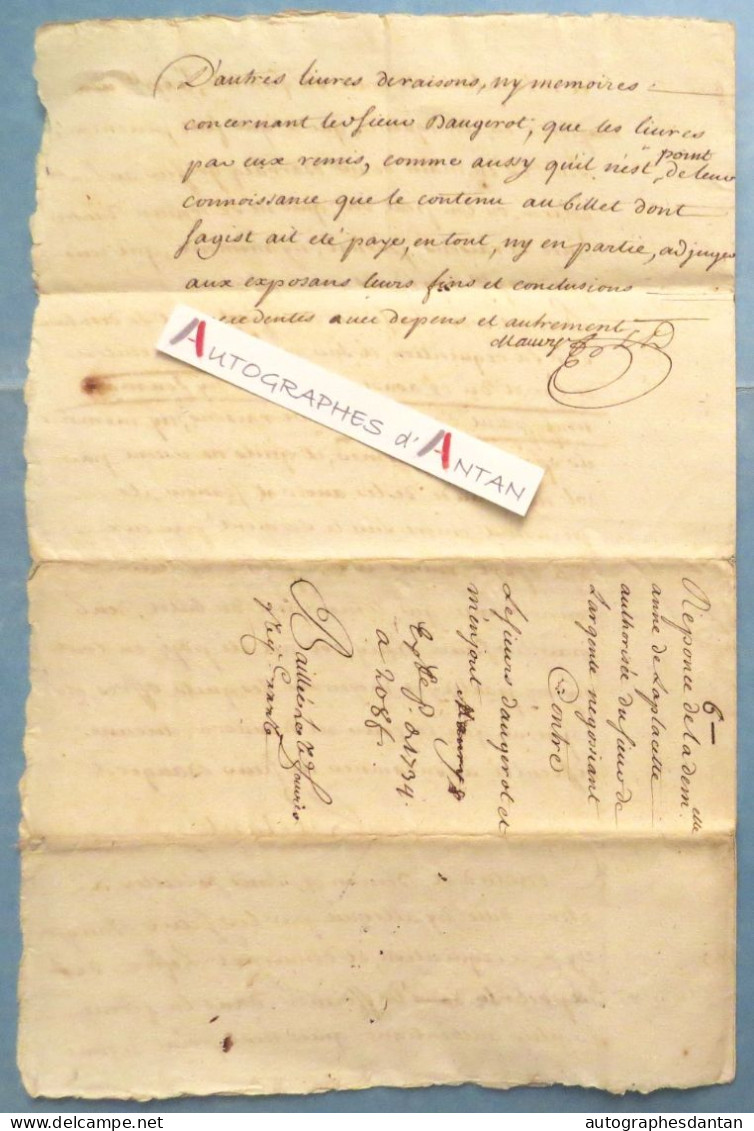 D'autres livres de raisons, ny memoires
concernant le sieur Daugerot, que les livres
par eux remis, comme aussy qu'il n'est point de leur
connoissance que le contenu au billet dont
sagist ait eté payé, en tout, ny en partie, adjuger
aux exposans leurs fins et conclusions
cedentes avec depens et autrement
Maury
AUTOGRAPHES d'ANTAN
6
Reponce de la dem.elle
anne de Laplacette
authorisée du sieur de
Largente negossiant
Contre
Les sieurs daugerot et
menjout
Maury
a 208
Baillée le
autographesdantan